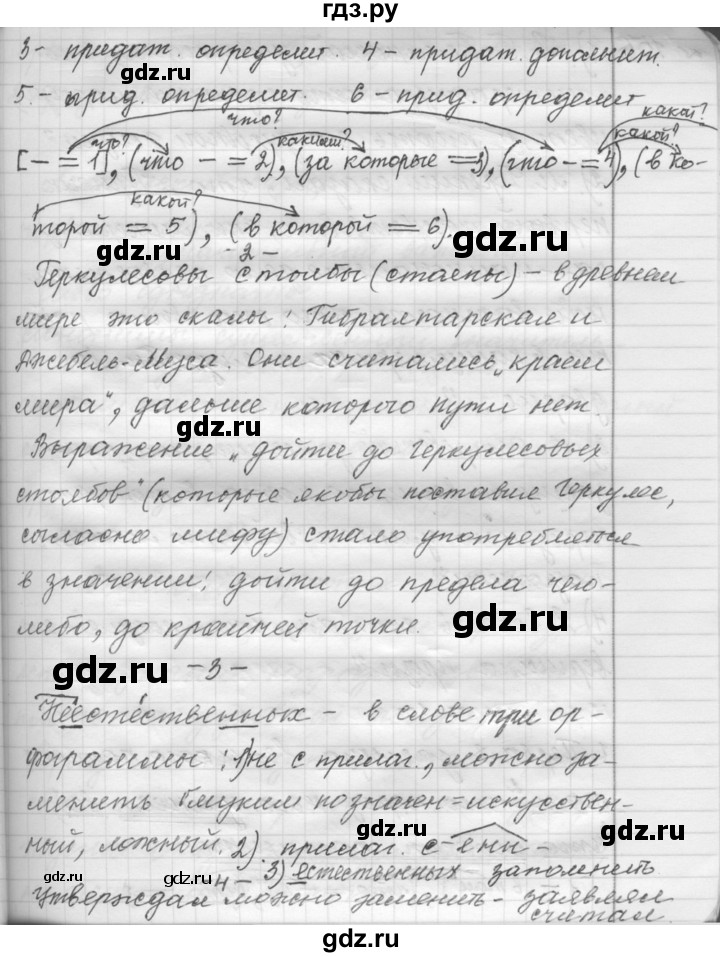 гдз.ру
3 - придат. определит. 4 - придат. дополнит.
5. - прид. определит. 6 - прид. определит
что? что? какими? какой? какой?
[- = 1], (что - = 2), (за которые = 3), (что - = 4), (в ко-
какой?
торой = 5), (в которой = 6).
- 2 -
Геркулесовы столбы (столпы) - в древнем
мире это скалы: Гибралтарская и
Джебель-Муса. Они считались „краем
мира", дальше которого пути нет.
Выражение „дойти до геркулесовых
столбов" (которые якобы поставил Геркулес,
согласно мифу) стало употребляться
в значении: дойти до предела чего-
либо, до крайней точки.
- 3 -
Неестественных - в слове три ор-
фограммы: 1) не с прилаг., можно за-
менить близким по значен = искусствен-
ный, ложный. 2) прилаг. с -енн-
3) естественных запомнить
- 4 -
Утверждал можно заменить - заявлял
считал.
gdz.ru
gdz.ru
gdz.ru
gdz.ru
gdz.ru
gdz.ru
gdz.ru
gdz.ru
gdz.ru
gdz.ru
gdz.ru
gdz.ru
gdz.ru
gdz.ru